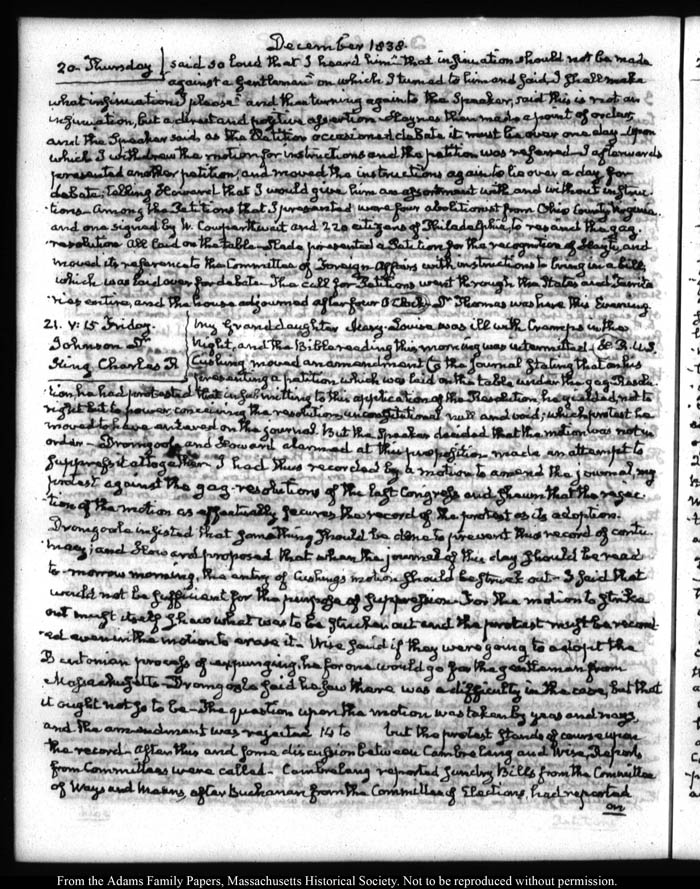 December 1838.
20. Thursday said so loud that I heard him "that insinuation should not be made
against a Gentleman" on which I turned to him and said, I shall make
what insinuations I please and then turning again to the Speaker, said this is not an
insinuation, but a direct and positive assertion. Haynes then made a point of order,
and the Speaker said as the Petition occasioned debate it must lie over one day. Upon
which I withdrew the motion for instructions and the petition was referred. I afterwards
presented another petition, and moved the instructions again to lie over a day for
debate; telling Howard that I would give him an assortment with and without instruc-
tions. Among the Petitions that I presented were four abolitionist from Ohio County Virginia.
and one signed by W. Cowperthwait and 220 citizens of Philadelphia, to rescind the gag-
resolution all laid on the table. Slade presented a Petition for the recognition of Hayti, and
moved its reference to the Committee of Foreign Affairs with instructions to bring in a bill
which was laid over for debate. The call for Petitions went through the States and Territo-
ries entire, and the house adjourned after four O'Clock. Dr Thomas was here this Evening.
21. V:15 Friday. My Granddaughter Mary-Louisa was ill with Cramps in the
Johnson Dr. Night, and the Bible reading this morning was intermitted. H. R. U.S.
King Charles R Cushing moved an amendment to the Journal stating that on his
presenting a petition which was laid on the table under the gag-Resolu-
tion he had protested that in submitting to this application of the Resolution, he yielded, not to
right but to power, conceiving the resolution, unconstitutional null and void; which protest he
moved to have entered on the journal. But the Speaker decided that the motion was not in
order. Dromgoole and Howard alarmed at this proposition made an attempt to
suppress it altogether. I had thus recorded by a motion to amend the journal, my
protest against the gag-resolutions of the last Congress and shewn that the rejec-
tion of the motion as effectually secures the record of the protest as its adoption.
Dromgoole insisted that something should be done to prevent this record of contu-
macy; and Howard proposed that when the journal of this day should be read
to-morrow morning, the entry of Cushings motion should be struck out. I said that
would not be sufficient for the purpose of suppression. For the motion to strike
out must itself shew what was to be stricken out and the protest must be record-
ed even in the motion to erase it. Wise said if they were going to adopt the
Bentonian process of expunging, he for one would go for the gentleman from
Massachusetts. Dromgoole said he saw there was a difficulty in the case, but that
it ought not so to be. The question upon the motion was taken by yeas and nays,
and the amendment was rejected 14 to but the protest stands of course upon
the record. After this and some discussion between Cambreleng and Wise, Reports
from Committees were called. Cambreleng reported sundry Bills from the Committee
of Ways and Means, after Buchanan from the Committee of Elections, had reported
on
From the Adams Family Papers, Massachusetts Historical Society. Not to be reproduced without permission.